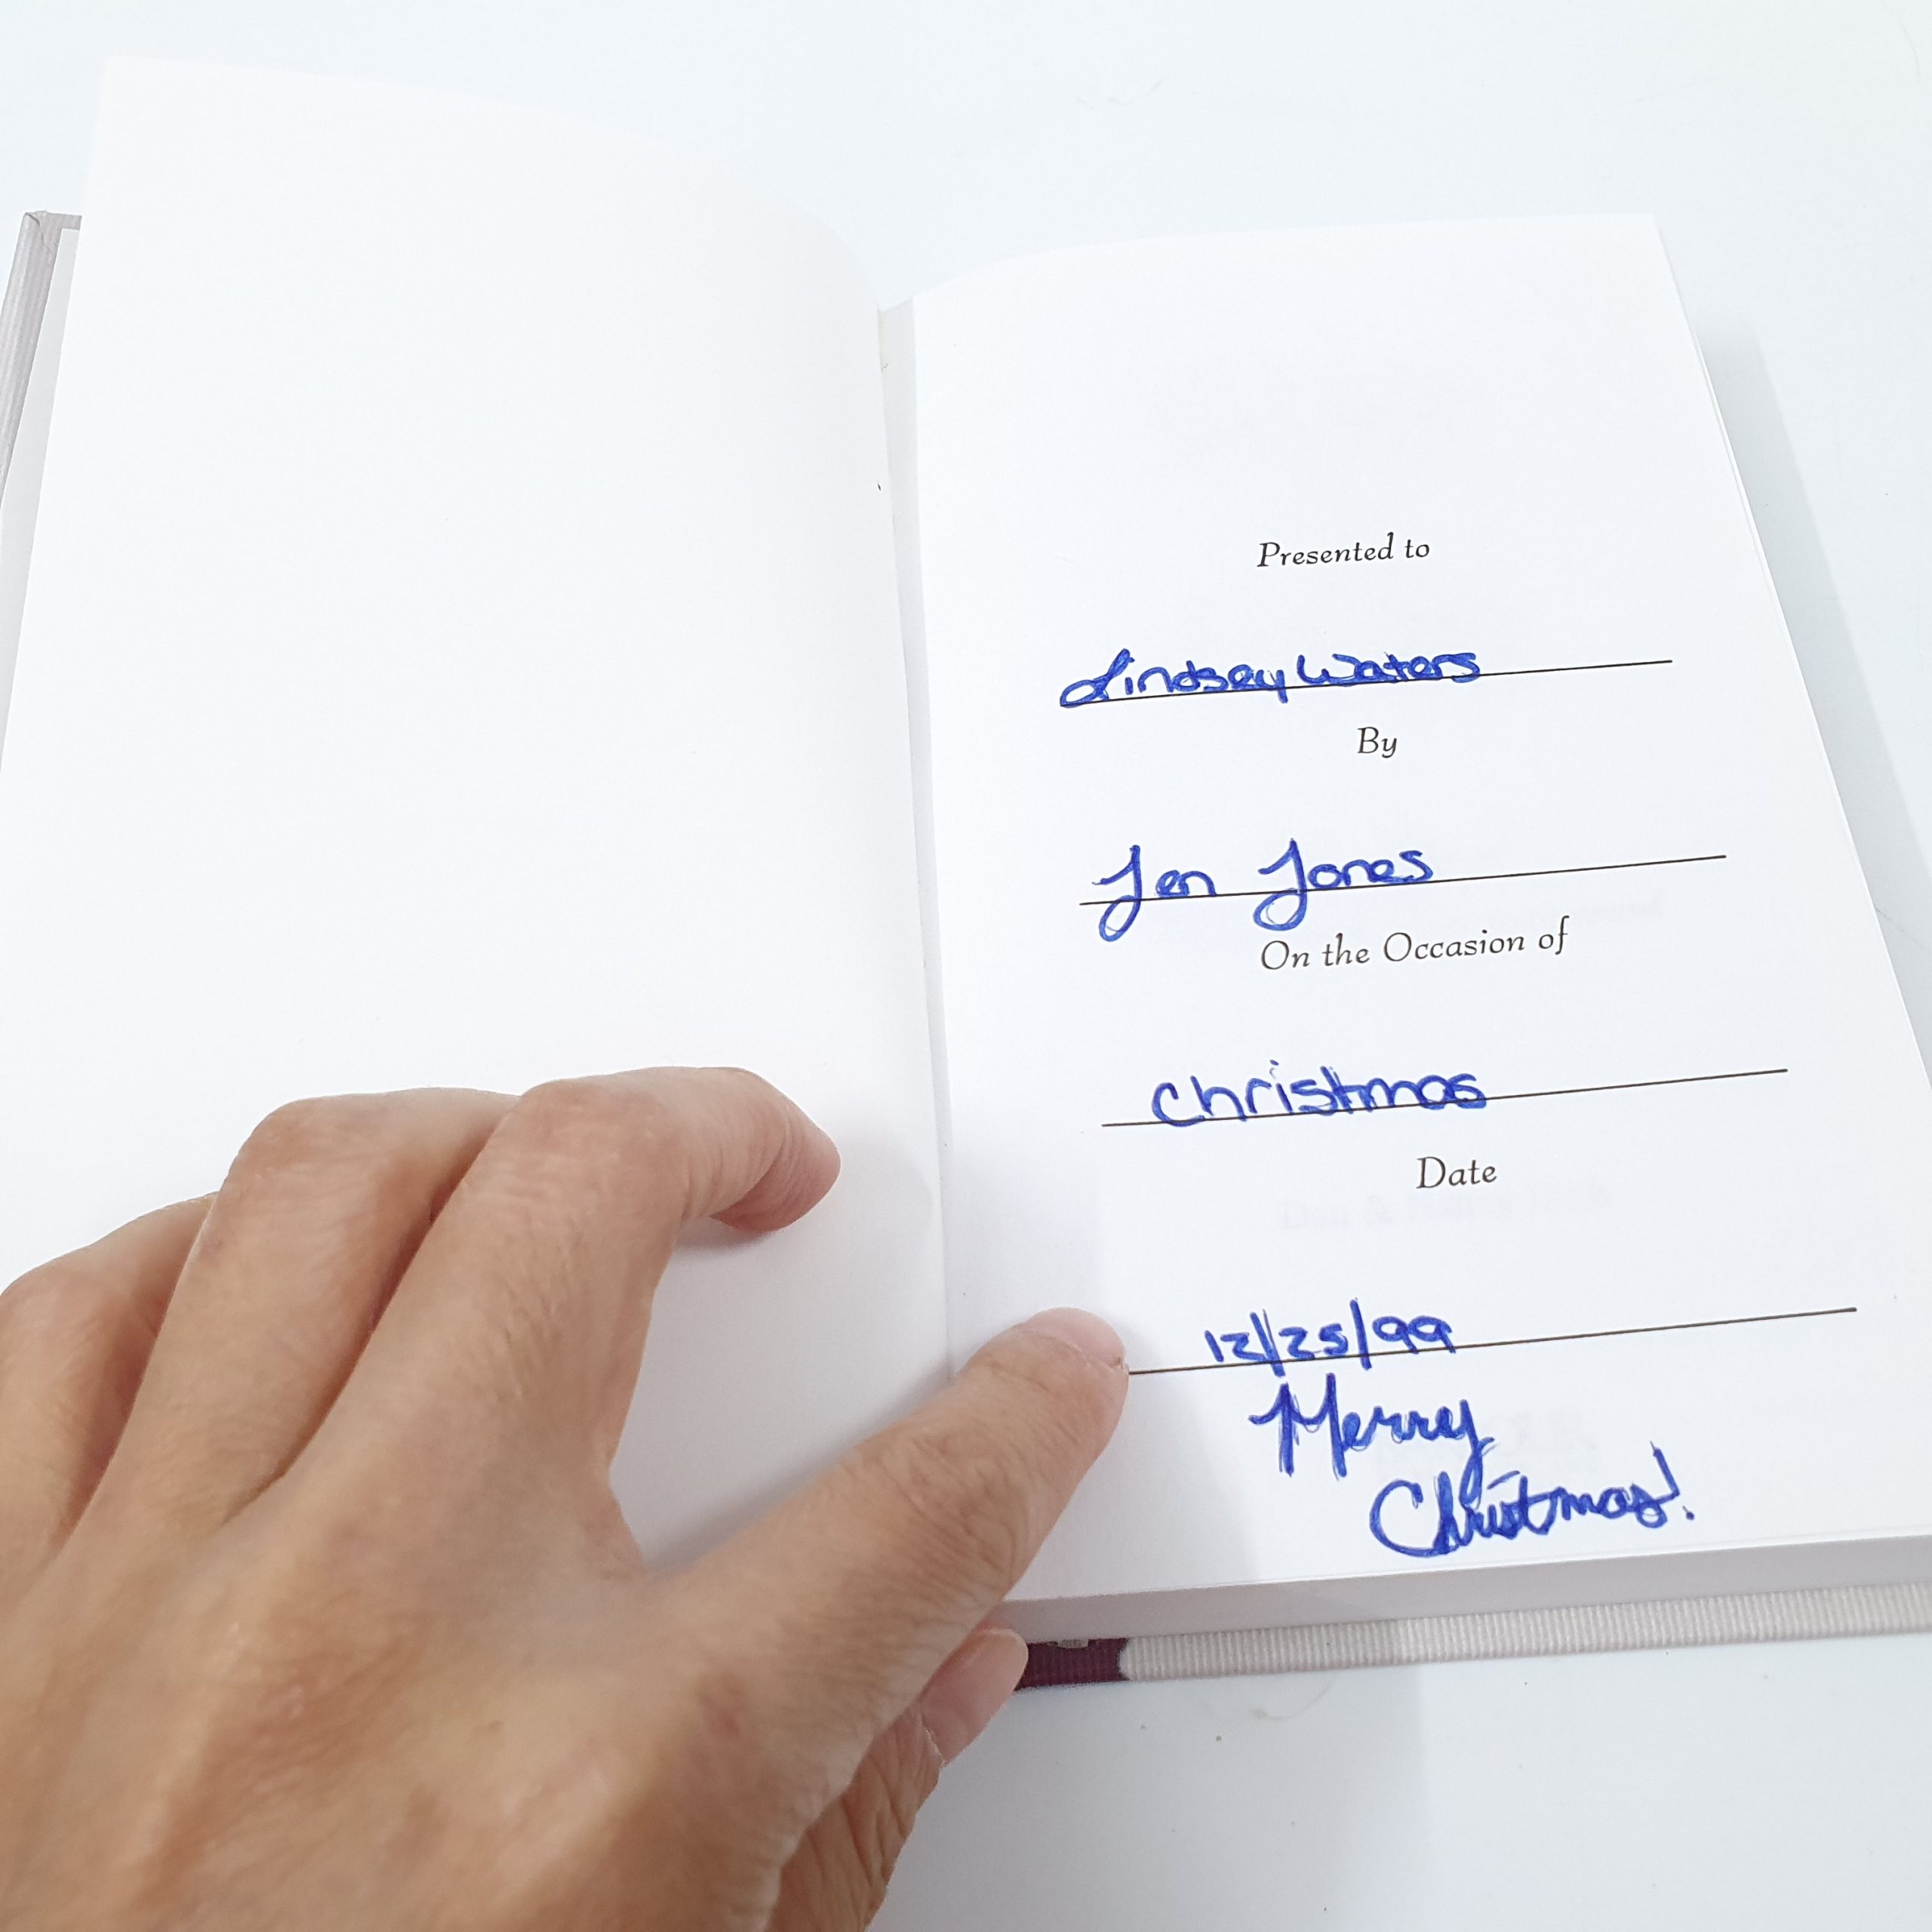 Presented to
Lindsey Waters
By
Jen Jones
On the Occasion of
Christmas
Date
12/25/99
Merry
Christmas!